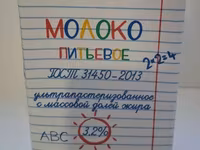 МОЛОКО
ПИТЬЕВОЕ
2×2=4
ГОСТ 31450-2013
ультрапастеризованное
с массовой долей жира
АВС 3,2%